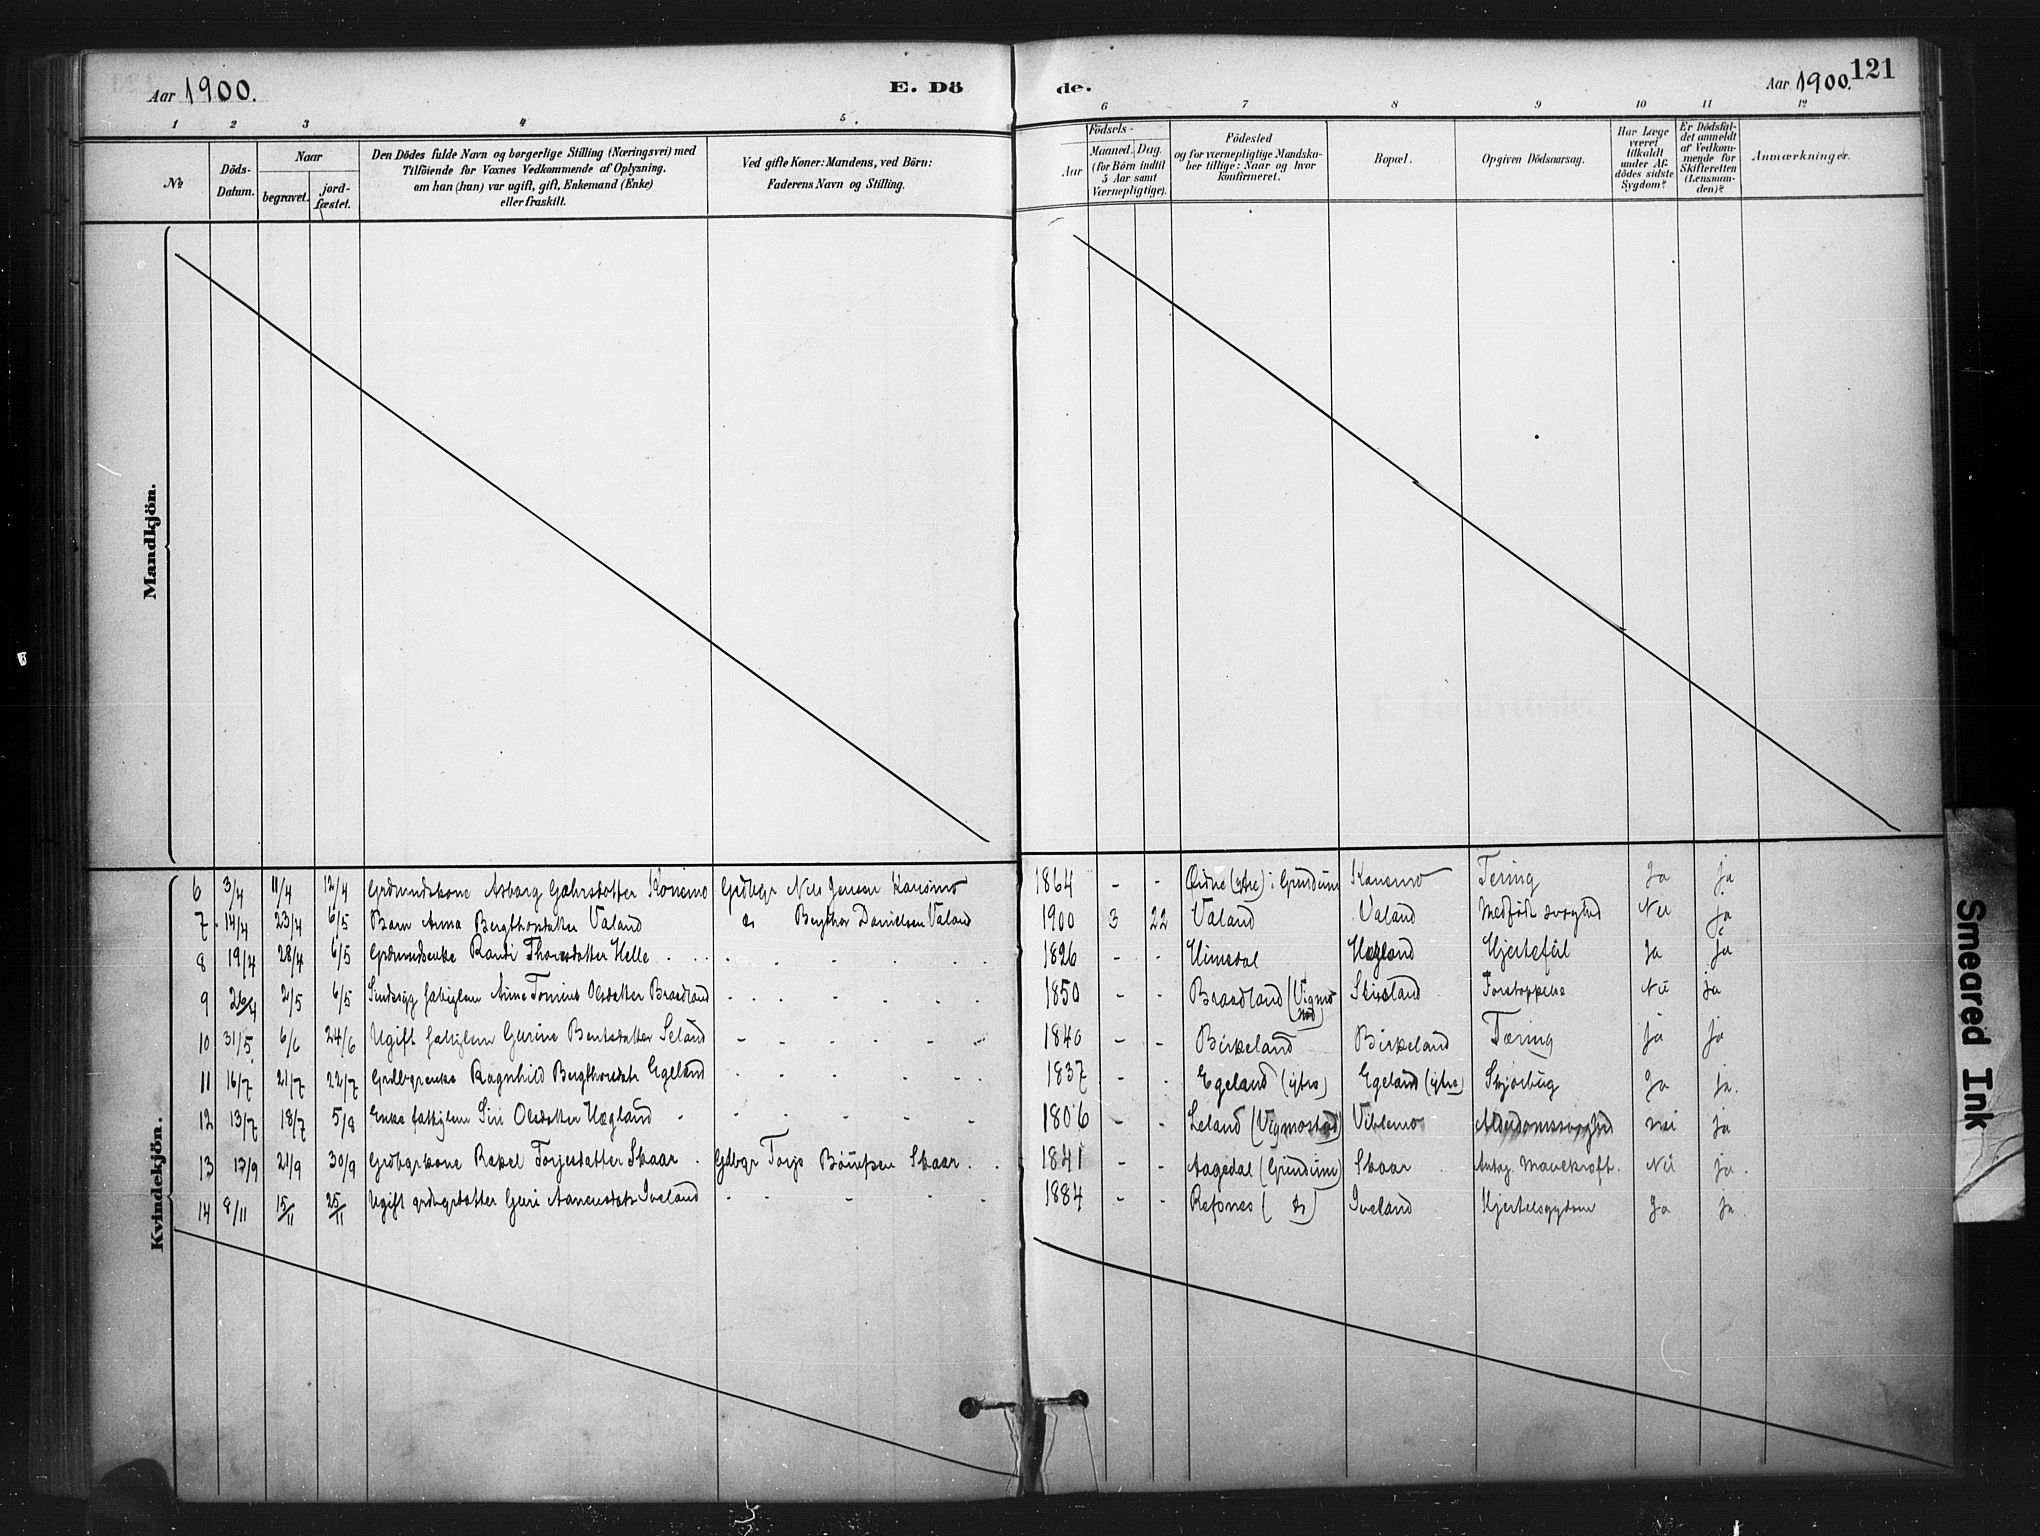 Aar 1900. E. Dö
de. Aar 1900. 121
1 2 3 4 5 6 7 8 9 10 11 12
№
Döds-
Datum.
Naar
begravet.
jord-
fæstet.
Den Dödes fulde Navn og borgerlige Stilling (Næringsvei) med
Tilföiende for Voxnes Vedkommende af Oplysning,
om han (hun) var ugift, gift, Enkemand (Enke)
eller fraskilt.
Ved gifte Koner: Mandens, ved Börn:
Faderens Navn og Stilling.
Födsels-
Aar
Maaned. Dag.
(for Börn indtil
5 Aar samt
Værnepligtige).
Födested
og for værnepligtige Mandska-
ber tillige: Naar og hvor
konfirmeret.
Bopæl.
Opgiven Dödsaarsag.
Har Læge
været
tilkaldt
under Af-
dödes sidste
Sygdom?
Er Dödsfal-
det anmeldt
af Vedkom-
mende for
Skifteretten
(Lensman-
den)?
Anmærkninger.
Mandkjön.
Kvindekjön.
6 3/4 11/4 12/4 Grdmndskone Asborg Konsmo Grdbgr Nils Jensen Konsmo 1864 - - Øidne (ytre) i Grindum Konsmo Tering Ja ja
7 14/4 23/4 6/5 Barn Anna Bergthorsdatter Valand Bergthor Danielsen Valand 1900 3 22 Valand Valand Medfødt svaghed Nei ja
8 19/4 28/4 6/5 Grdmandsenke Randi Thorsdatter Helle 1826 - - Himedal Hægland Hjertefeil Ja ja
9 26/4 2/5 6/5 Sindssyg fattiglem Anne Tomine Olsdatter Braadland 1850 - - Braadland (Vigmo
stad) Skiusland Forstoppelse Nei ja
10 31/5 6/6 24/6 Ugift fattiglem Gurine Bentsdatter Seland 1840 - - Birkeland Birkeland Tæring Ja ja
11 16/7 21/7 22/7 Grdbgrenke Ragnhild Bergthorsdatr Egeland 1837 - - Egeland (ytre) Egeland (ytre) Skjørbug Ja ja.
12 13/7 18/7 5/8 Enke fattiglem Siri Olsdatter Hægland 1806 - - Leland (Vigmostad) Viblemo Alderdomssvaghed nei ja
13 17/9 21/9 30/9 Grdbgrkone Rakel Torjusdatter Skaar Gdbgr Torjs Skaar 1841 - - Aagedal (Grindum) Skaar Antag. Mavekræft. Nei ja.
14 8/11 15/11 25/11 Ugift grdbgrdatter Guri Aanensdatr Iveland 1884 - - Refsnes Iveland Kjertelsygdom Ja ja.
Smeared Ink